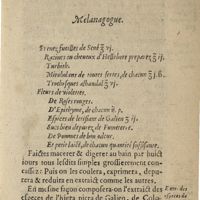 Melanagogue.
Prenez fueilles de Sené ℥ vj.
Racines ou cheueux d'Hellebore preparez ℥ ij.
Turbith.
Mirabolans de toutes sortes, de chacun ℥ j. ß.
Trochisques alhandal ℥ vj.
Fleurs de violettes.
De Roses rouges.
D'Epithyme, de chacun p.
Especes de lesisant de Galien ℥ ij.
Sucs bien depurez de Fumeterre.
De Pommes de bon odeur.
Et petit laict, de chacun quantité suffisante.
Faictes macerer & digerer au bain par huict
iours tous lesdits simples grossierement con-
cassez: Puis on les coulera, exprimera, depu-
rera & reduira en extraict comme les autres.
En mesme façon composera-on l'extraict des
especes de l'hiera picra de Galien, de Colo-